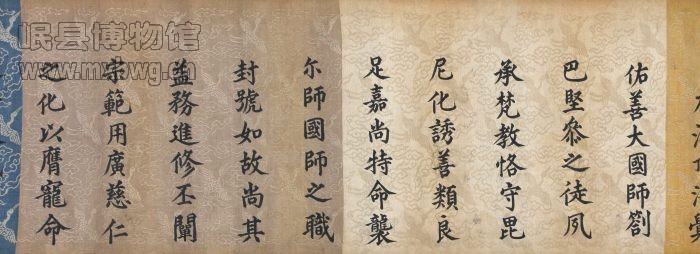 佑善大國師劄
巴堅叅之徒夙
承梵教恪守毘
尼化誘善類良
足嘉尚特命襲
尓師國師之職
封號如故尚其
益務進修丕闡
宗範用廣慈仁
之化以膺寵命
岷县博物馆